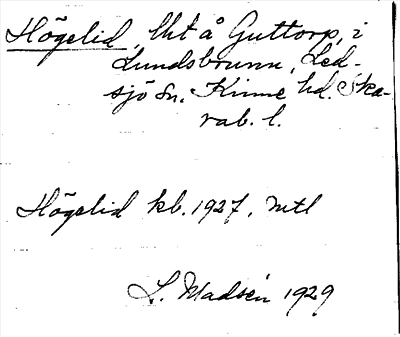 Högelid, lht å Guttorp, i
Lundsbrunn, Led-
sjö sn. Kinne hd. Ska-
rab. l.
Högelid kb. 1927, mtl
L. Madsén 1929